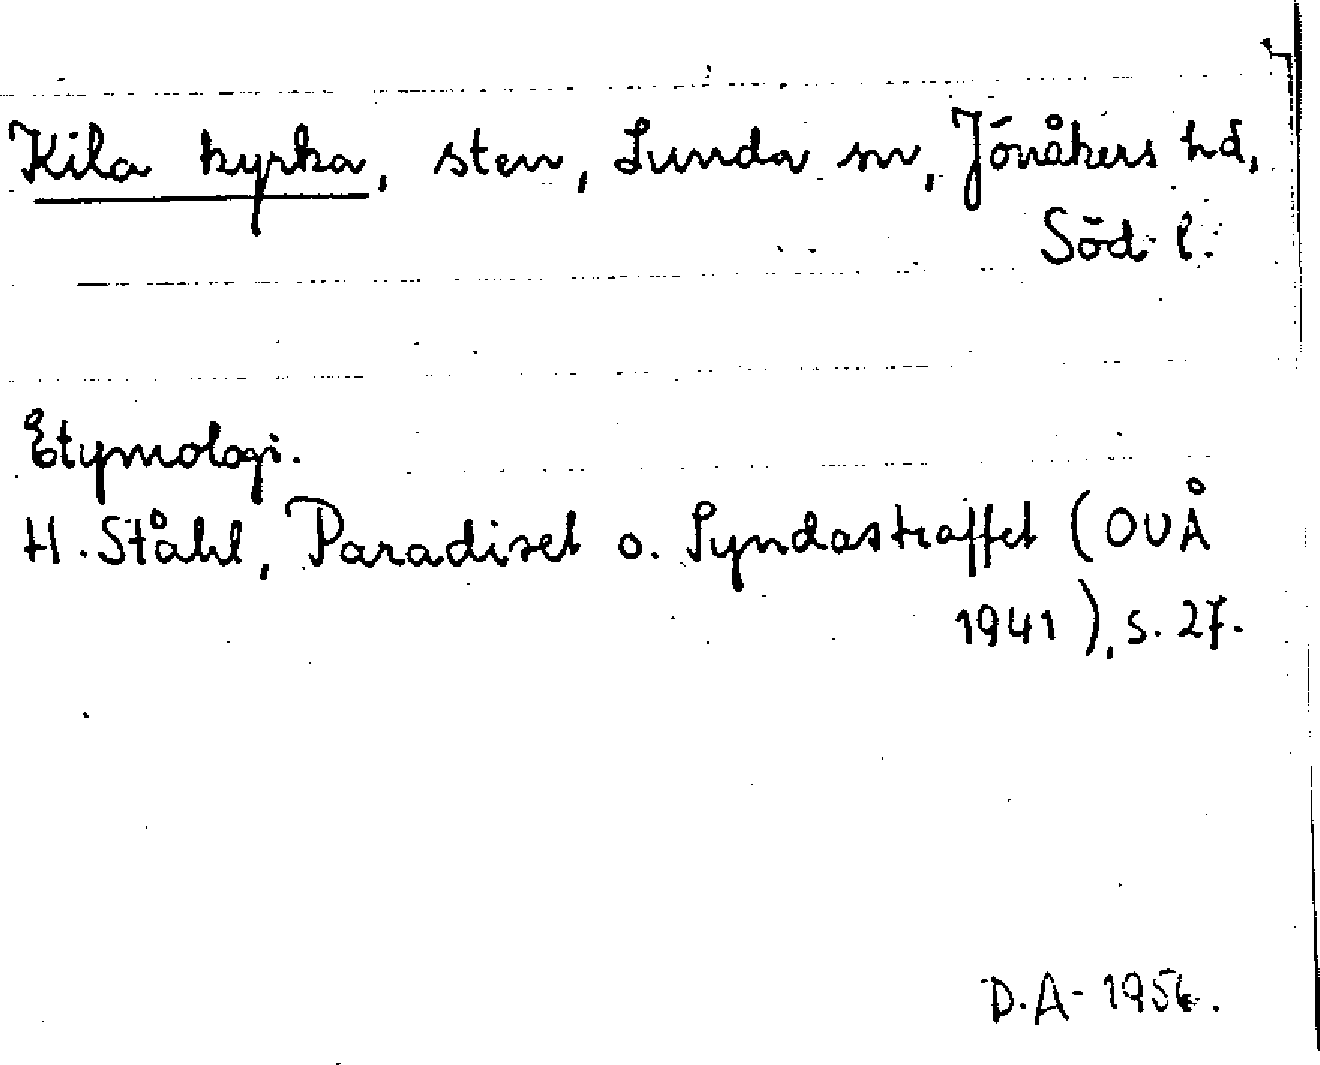 Kila kyrka, sten, Lunda sn, Jönåkers hd,
Söd. l.
Etymologi.
H. Ståhl, Paradiset o. Syndastraffet (OUÅ
1941), s. 27.
D.A. 1956.